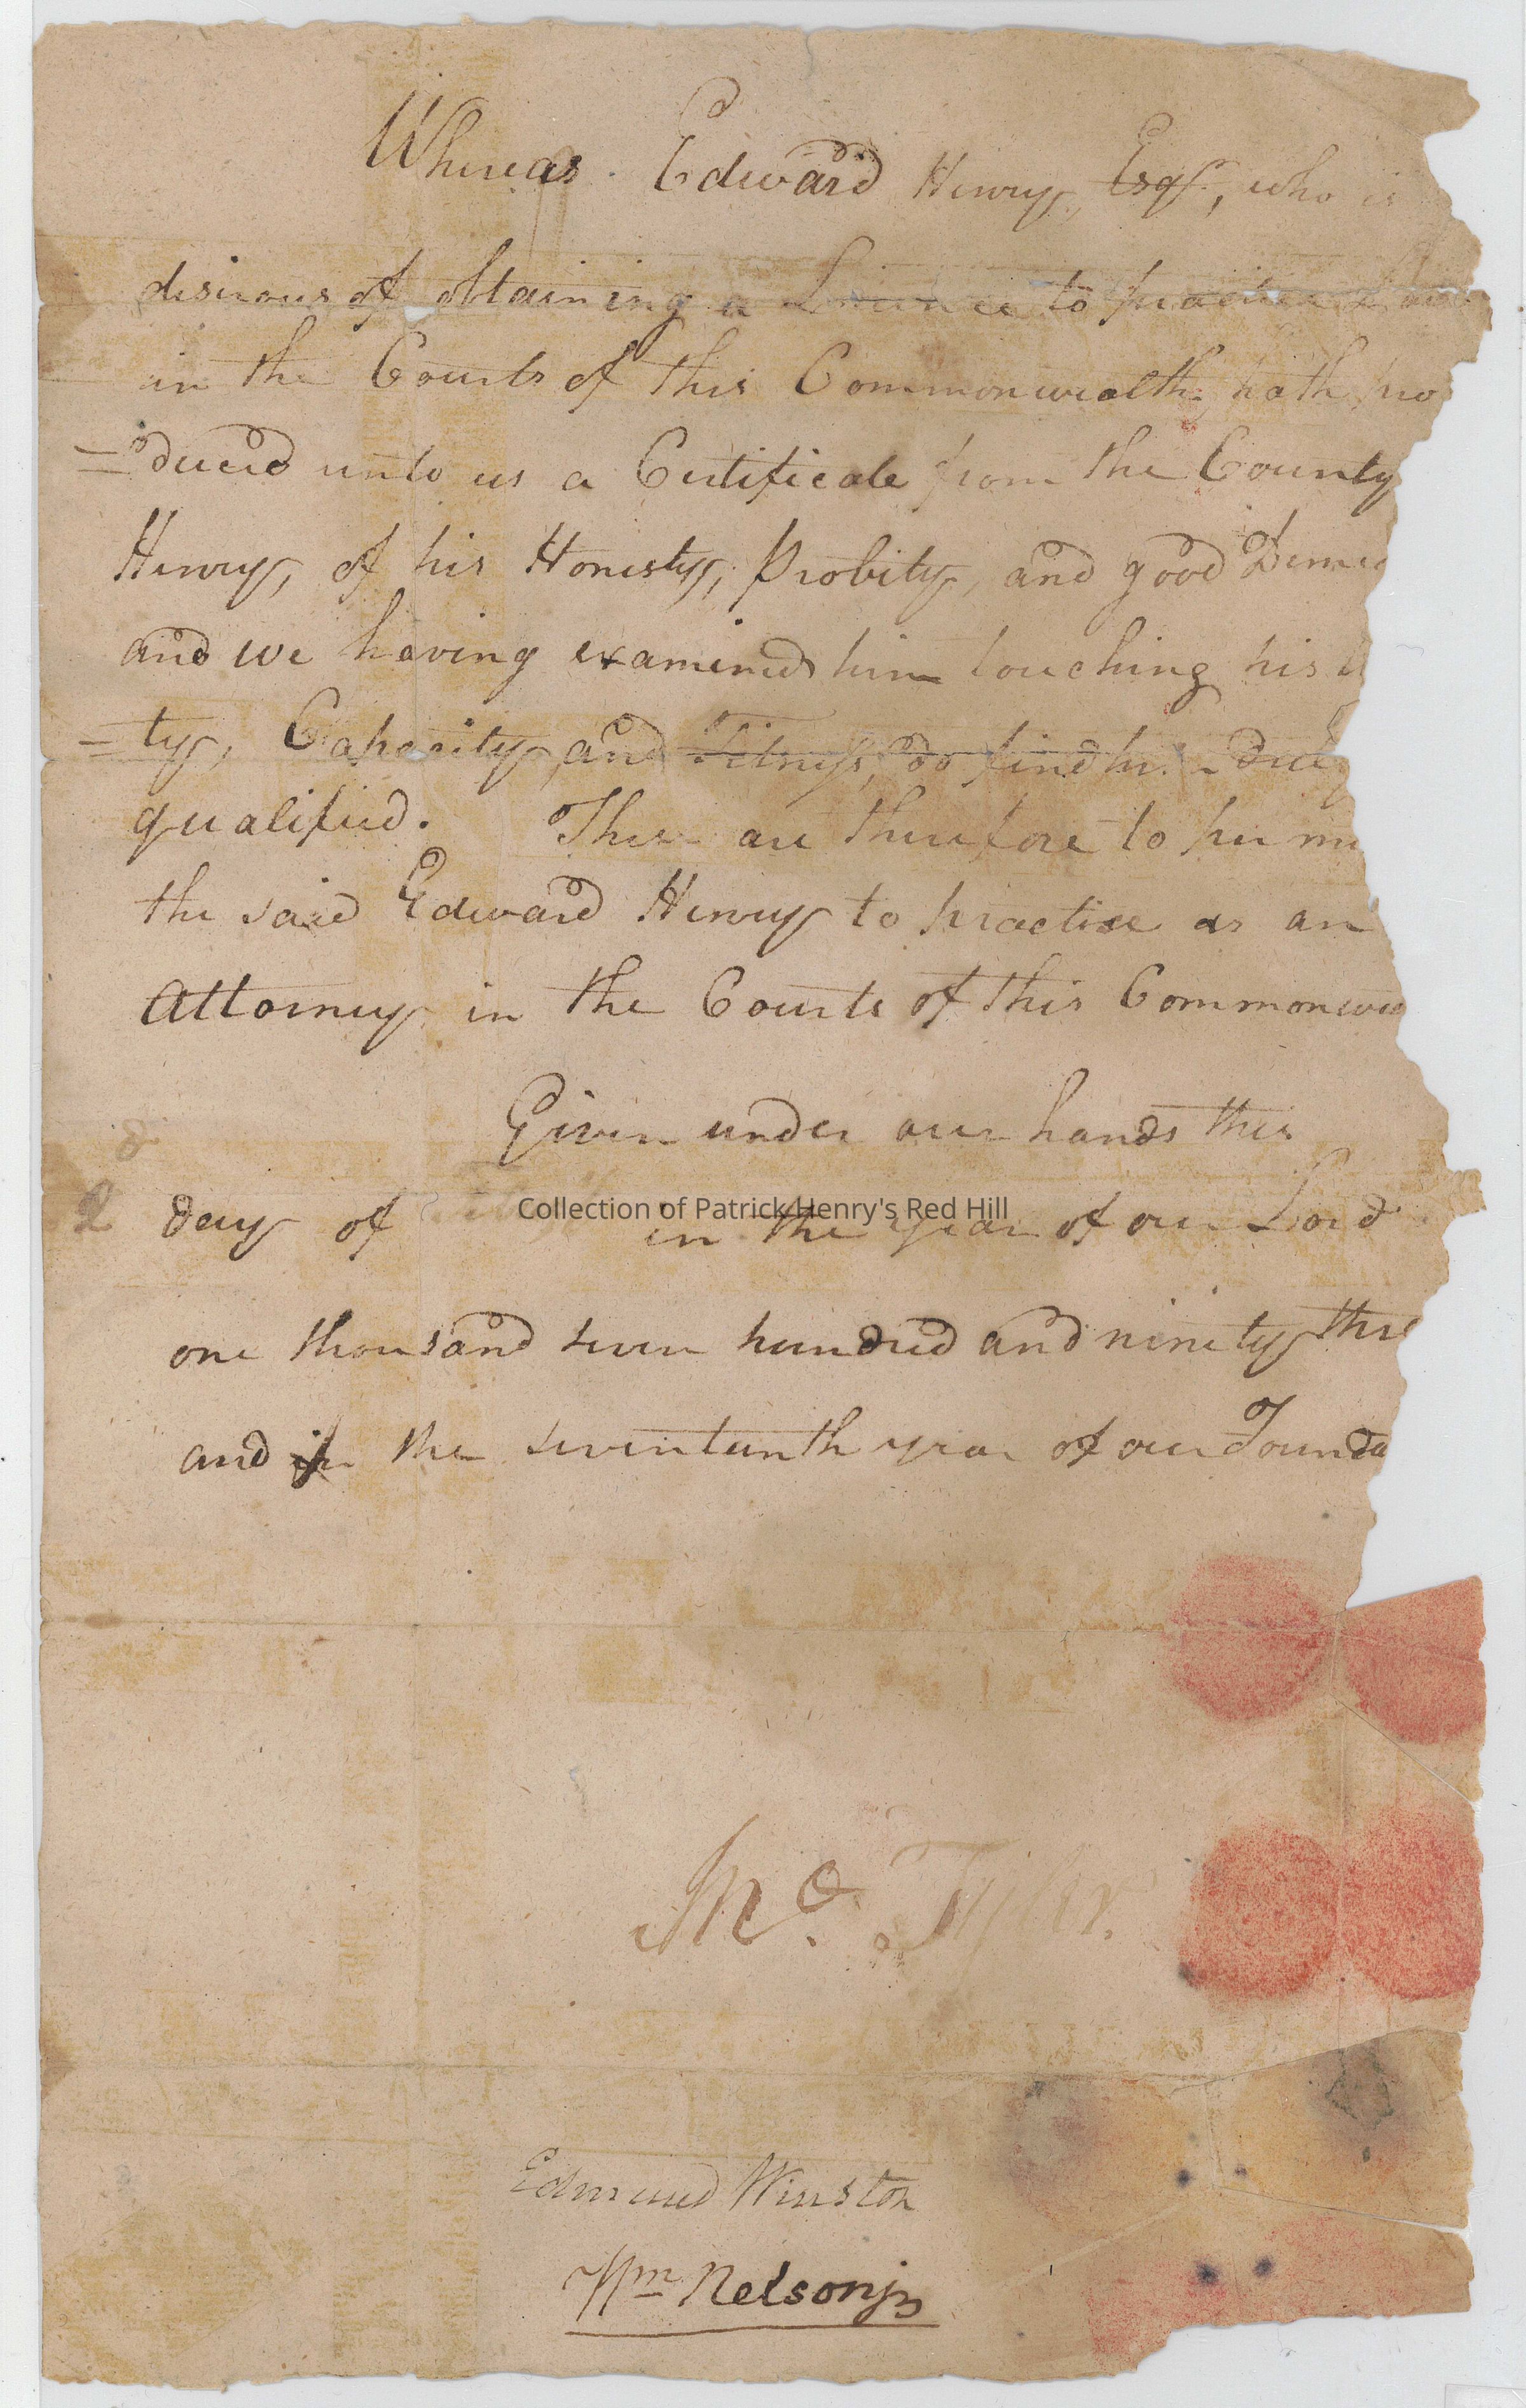 Whereas Edward Henry, Esqr., who is
desirous of obtaining a Licence to practice Law
in the Courts of this Commonwealth, hath pro
=duced unto us a Certificate from the County
Henry, of his Honesty, Probity, and good Deme
and we having examined him touching his
=ty, Capacity, and Fitness, do find him duly
qualified. These are therefore to permi
the said Edward Henry to practise as an
Attorney in the Courts of this Commonwea
Given under our hands this
8
2 day of in the year of our Lord
Collection of Patrick Henry's Red Hill
one thousand seven hundred and ninety three
and in the seventeenth year of our Founda
Jno. Tyler.
Edmund Winston
Wm Nelson jr